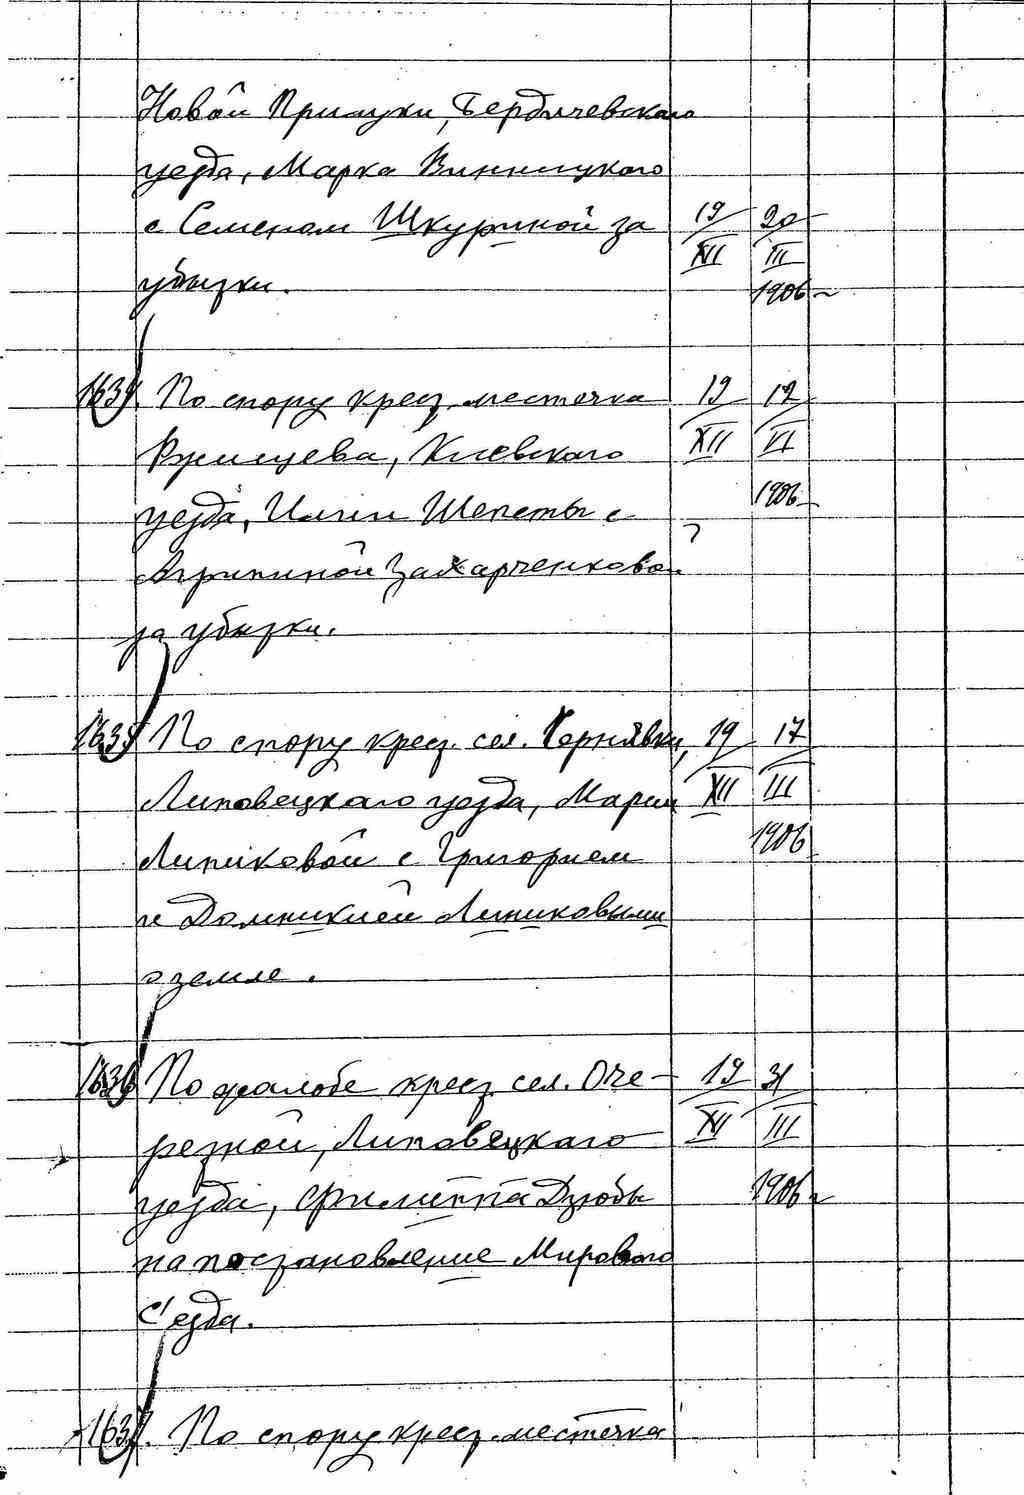 Новой Прилуки, Бердичевского
уезда, Марка Винницкого
с Семеном Шкуриной за 19 20
XII III
убытки. 1906
1634. По спору крест. местечка 19 12
Ржищева, Киевского XII VI
1906
уезда, Илии Шепеты с
Агрипиной Захарченковой
за убытки.
1635 По спору крест. сел. Чернявки, 19 17
Липовецкаго уезда, Марии XII III
1906
Линиковой с Григорием
и Домникией Линиковыми
о земле.
1636 По жалобе крест. сел. Оче- 19 31
ретной, Липовецкаго XII III
уезда, Филиппа Дзюбы 1906
на постановление Мирового
С'езда.
1637. По спору крест. местечка